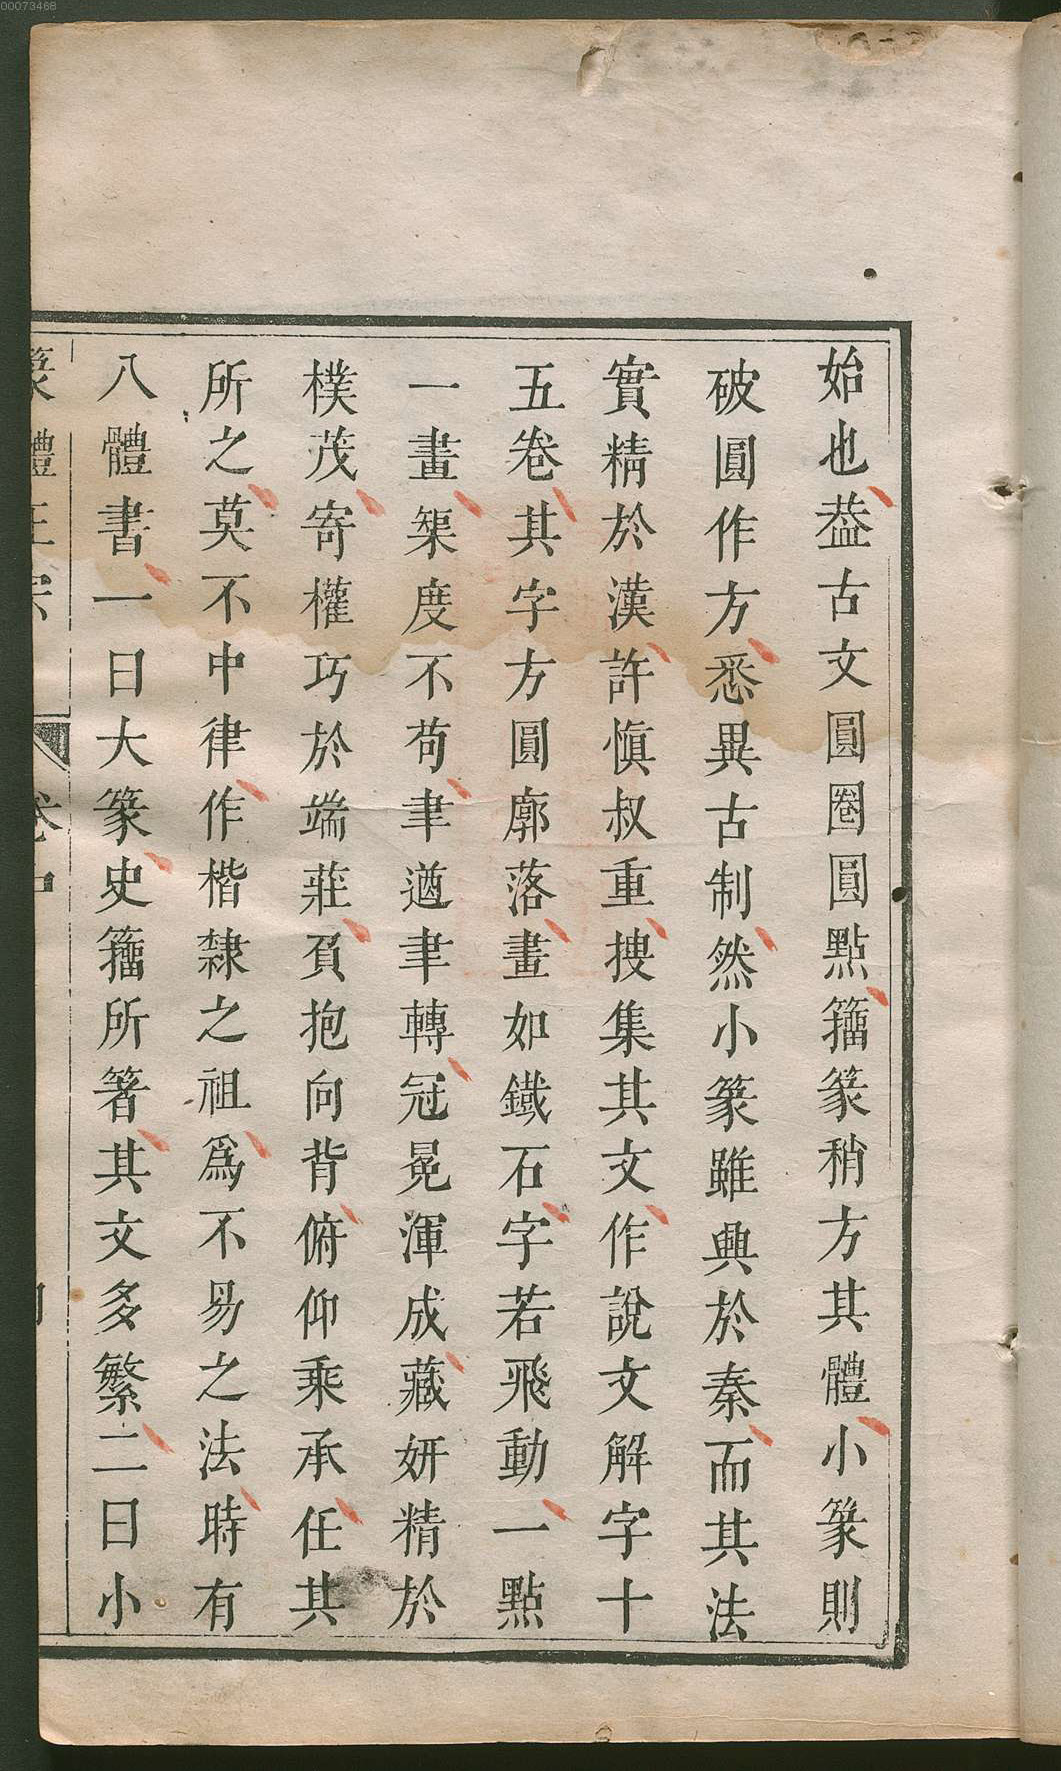 00073468
始也葢古文圓圈圓點籀篆稍方其體小篆則
破圓作方悉異古制然小篆雖興於秦而其法
實精於漢許慎叔重搜集其文作說文解字十
五卷其字方圓廓落畫如鐵石字若飛動一點
一畫榘度不苟聿遒聿轉冠冕渾成藏妍精於
樸茂寄權巧於端莊負抱向背俯仰乘承任其
所之莫不中律作楷隸之祖爲不易之法時有
八體書一曰大篆史籀所箸其文多繁二曰小
篆體正宗 卷中